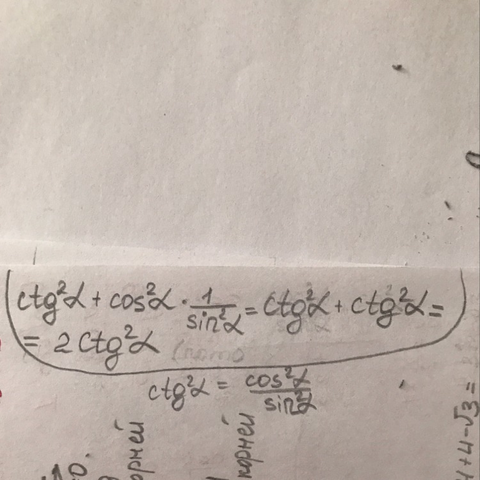 ctg²α + cos²α · 1/sin²α = ctg²α + ctg²α =
= 2 ctg²α
ctg²α = cos²α/sin²α
корней
4+4-√3 =